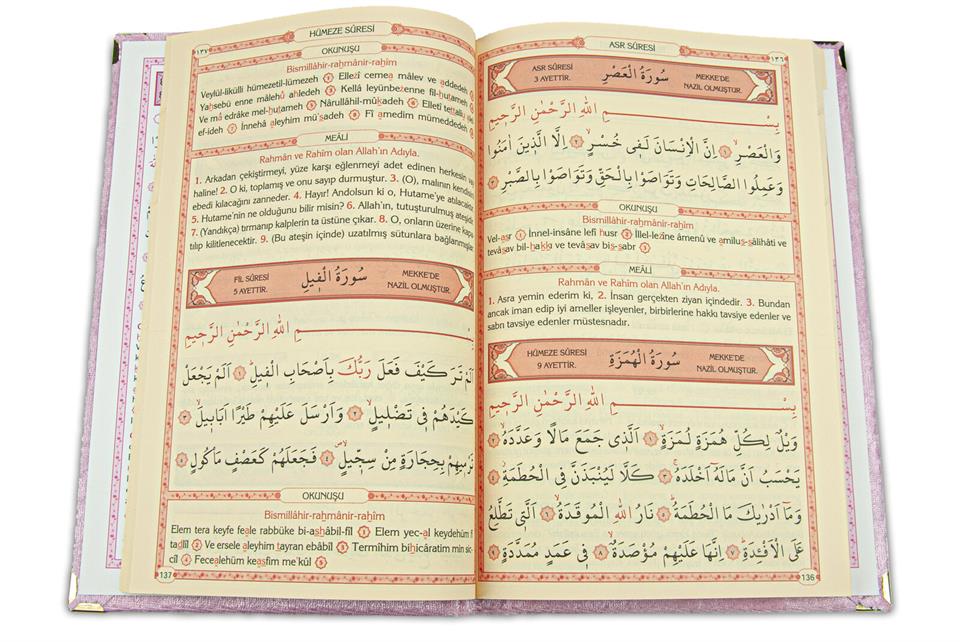 ١٣٦
ASR SÛRESİ
ASR SÛRESİ
3 AYETTİR.
سُورَةُ الْعَصْرِ
MEKKE'DE
NAZİL OLMUŞTUR.
بِسْــــمِ اللهِ الرَّحْمٰنِ الرَّحِيمِ
وَالْعَصْرِۙ ﴿١﴾ اِنَّ الْاِنْسَانَ لَفٖى خُسْرٍۙ ﴿٢﴾ اِلَّا الَّذٖينَ اٰمَنُوا
وَعَمِلُوا الصَّالِحَاتِ وَتَوَاصَوْا بِالْحَقِّ وَتَوَاصَوْا بِالصَّبْرِ ﴿٣﴾
OKUNUŞU
Bismillâhir-raḥmânir-raḥîm
Vel-asr ① İnnel-insâne lefî ḣusr ② İllel-leẕîne âmenû ve amilus-sâlihâti ve
tevâsav bil-ḥakkı ve tevâsav bis-sabr ③
MEALİ
Rahmân ve Rahîm olan Allah'ın Adıyla.
1. Asra yemin ederim ki, 2. İnsan gerçekten ziyan içindedir. 3. Bundan
ancak iman edip iyi ameller işleyenler, birbirlerine hakkı tavsiye edenler ve
sabrı tavsiye edenler müstesnadır.
HÜMEZE SÛRESİ
9 AYETTİR.
سُورَةُ الْهُمَزَةِ
MEKKE'DE
NAZİL OLMUŞTUR.
بِسْــــمِ اللهِ الرَّحْمٰنِ الرَّحِيمِ
وَيْلٌ لِكُلِّ هُمَزَةٍ لُمَزَةٍۙ ﴿١﴾ اَلَّذٖى جَمَعَ مَالًا وَعَدَّدَهُۙ ﴿٢﴾
يَحْسَبُ اَنَّ مَالَهُٓ اَخْلَدَهُۚ ﴿٣﴾ كَلَّا لَيُنْبَذَنَّ فِى الْحُطَمَةِۘ ﴿٤﴾
وَمَٓا اَدْرٰيكَ مَا الْحُطَمَةُؕ ﴿٥﴾ نَارُ اللهِ الْمُوقَدَةُۙ ﴿٦﴾ اَلَّتٖى تَطَّلِعُ
عَلَى الْاَفْـِٔدَةِؕ ﴿٧﴾ اِنَّهَا عَلَيْهِمْ مُؤْصَدَةٌۙ ﴿٨﴾ فٖى عَمَدٍ مُمَدَّدَةٍ ﴿٩﴾
136
١٣٧
HÜMEZE SÛRESİ
OKUNUŞU
Bismillâhir-raḥmânir-raḥîm
Veylül-likülli hümezetil-lümezeh ① Elleẕî cemea mâlev ve addedeh
Yaḥsebü enne mâlehû aḣledeh ③ Kellâ leyünbeẕenne fil-ḥutameh
Ve mâ edrâke mel-ḥutameh ⑤ Nârullâhil-mûkadeh ⑥ Elletî tettaliu
ef-ideh ⑦ İnnehâ aleyhim mü'sadeh ⑧ Fî amedim mümeddedeh
MEALİ
Rahmân ve Rahîm olan Allah'ın Adıyla.
1. Arkadan çekiştirmeyi, yüze karşı eğlenmeyi adet edinen herkesin vay
haline! 2. O ki, toplamış ve onu sayıp durmuştur. 3. (O), malının kendisini
ebedi kılacağını zanneder. 4. Hayır! Andolsun ki o, Hutame'ye atılacaktır
5. Hutame'nin ne olduğunu bilir misin? 6. Allah'ın, tutuşturulmuş ateşidir
7. (Yandıkça) tırmanıp kalplerin ta üstüne çıkar. 8. O, onların üzerine kapa
tılıp kilitlenecektir. 9. (Bu ateşin içinde) uzatılmış sütunlara bağlanmışlar
FİL SÛRESİ
5 AYETTİR.
سُورَةُ الْفٖيلِ
MEKKE'DE
NAZİL OLMUŞTUR.
بِسْــــمِ اللهِ الرَّحْمٰنِ الرَّحِيمِ
اَلَمْ تَرَ كَيْفَ فَعَلَ رَبُّكَ بِاَصْحَابِ الْفٖيلِؕ ﴿١﴾ اَلَمْ يَجْعَلْ
كَيْدَهُمْ فٖى تَضْلٖيلٍۙ ﴿٢﴾ وَاَرْسَلَ عَلَيْهِمْ طَيْرًا اَبَابٖيلَۙ ﴿٣﴾
تَرْمٖيهِمْ بِحِجَارَةٍ مِنْ سِجّٖيلٍۙ ﴿٤﴾ فَجَعَلَهُمْ كَعَصْفٍ مَأْكُولٍ ﴿٥﴾
OKUNUŞU
Bismillâhir-raḥmânir-raḥîm
Elem tera keyfe feale rabbüke bi-asḥâbil-fîl ① Elem yec-al keydehüm fî
tadlîl ② Ve ersele aleyhim tayran ebâbîl ③ Termîhim biḥicâratim min sic-
cîl ④ Fecealehüm keasfim me'kûl ⑤
137